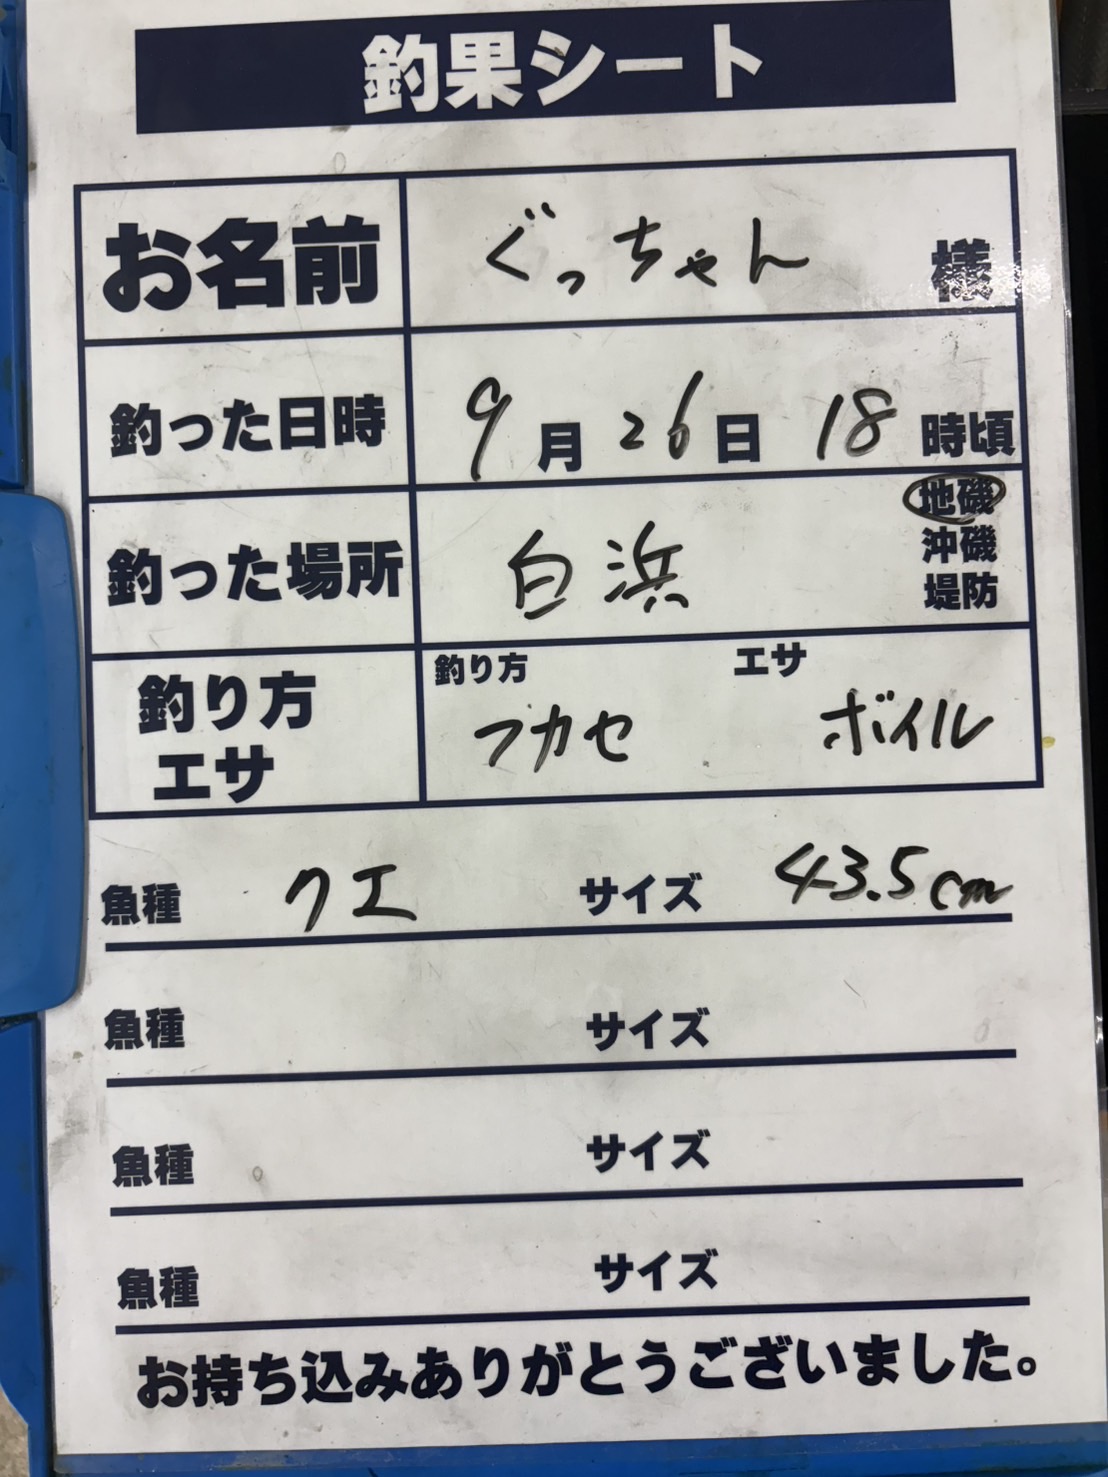 釣果シート
お名前 ぐっちゃん 様
釣った日時 9月26日 18時頃
釣った場所 白浜 地磯
沖磯
堤防
釣り方 エサ
釣り方 フカセ ボイル
エサ
魚種 クエ サイズ 43.5cm
魚種 サイズ
魚種 サイズ
魚種 サイズ
お持ち込みありがとうございました。